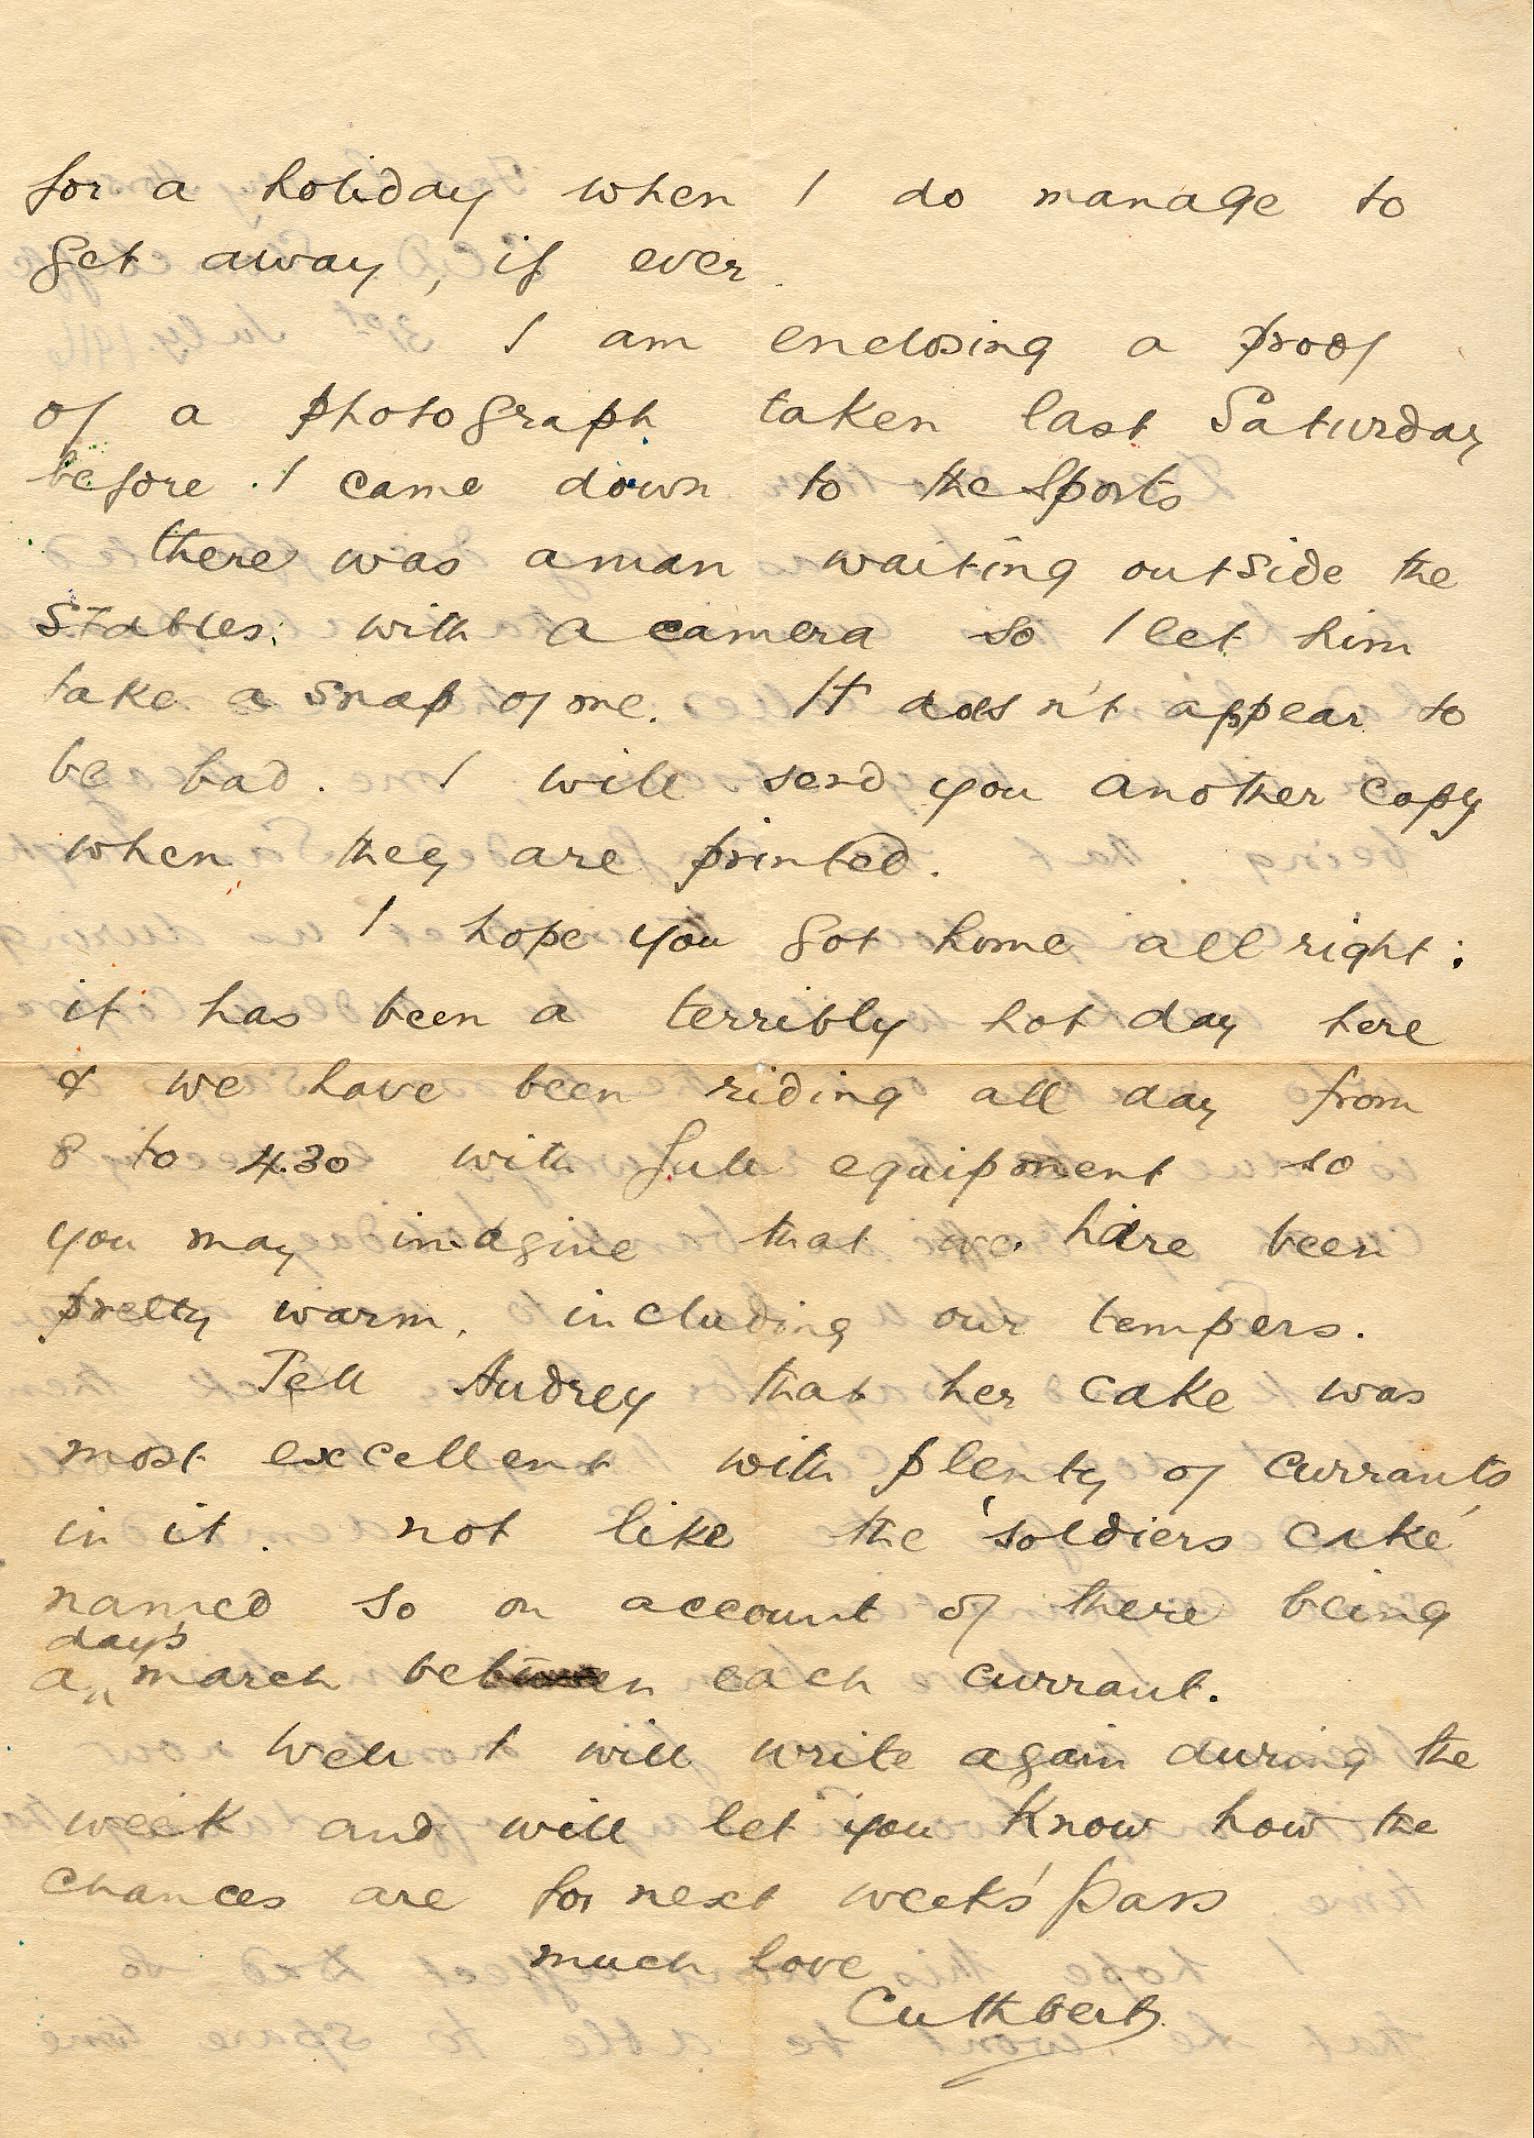 for a holiday when I do manage to
get away, if ever.
I am enclosing a proof
of a photograph taken last Saturday
before I came down to the Sports
there was a man waiting outside the
stables; with a camera so I let him
take a snap of me. It doesn't appear to
be bad. I will send you another copy
when they are printed.
I hope you got home all right:
it has been a terribly hot day here
& we have been riding all day from
8 to 4.30 with full equipment so
you may imagine that we have been
pretty warm, including our tempers.
Tell Audrey that her cake was
most excellent with plenty of currants
in it. not like the 'soldiers cake'
named so on account of there being
a day's march between each currant.
Well I will write again during the
week and will let you know how the
chances are for next weeks' pass
much love
Cuthbert.